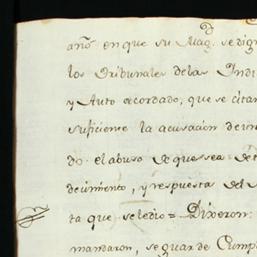 año en que su Mag. se dign
los Tribunales delas Indi
y Auto acordado, que se citan
suficiente la acusacion de in
do el abuso de que sea
decimiento, y respuesta del S
ta que seledio = Dixeron:
mandaron, se guarde Cump